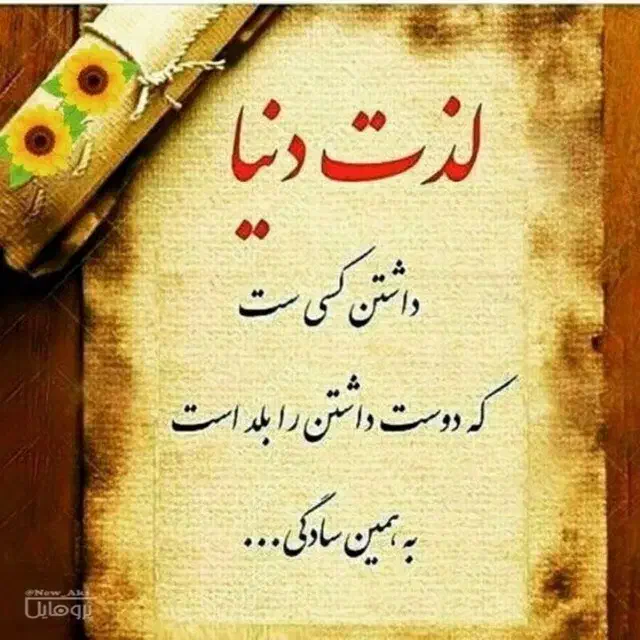 لذت دنیا
داشتن کسی ست
که دوست داشتن را بلد است
به همین سادگی...
@New_Aks
پروفایل